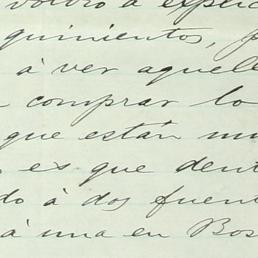 volvió á esplic
quinientos, p
á ver aquell
comprar lo
que están mu
es que dent
do á dos fuent
á una en Bos